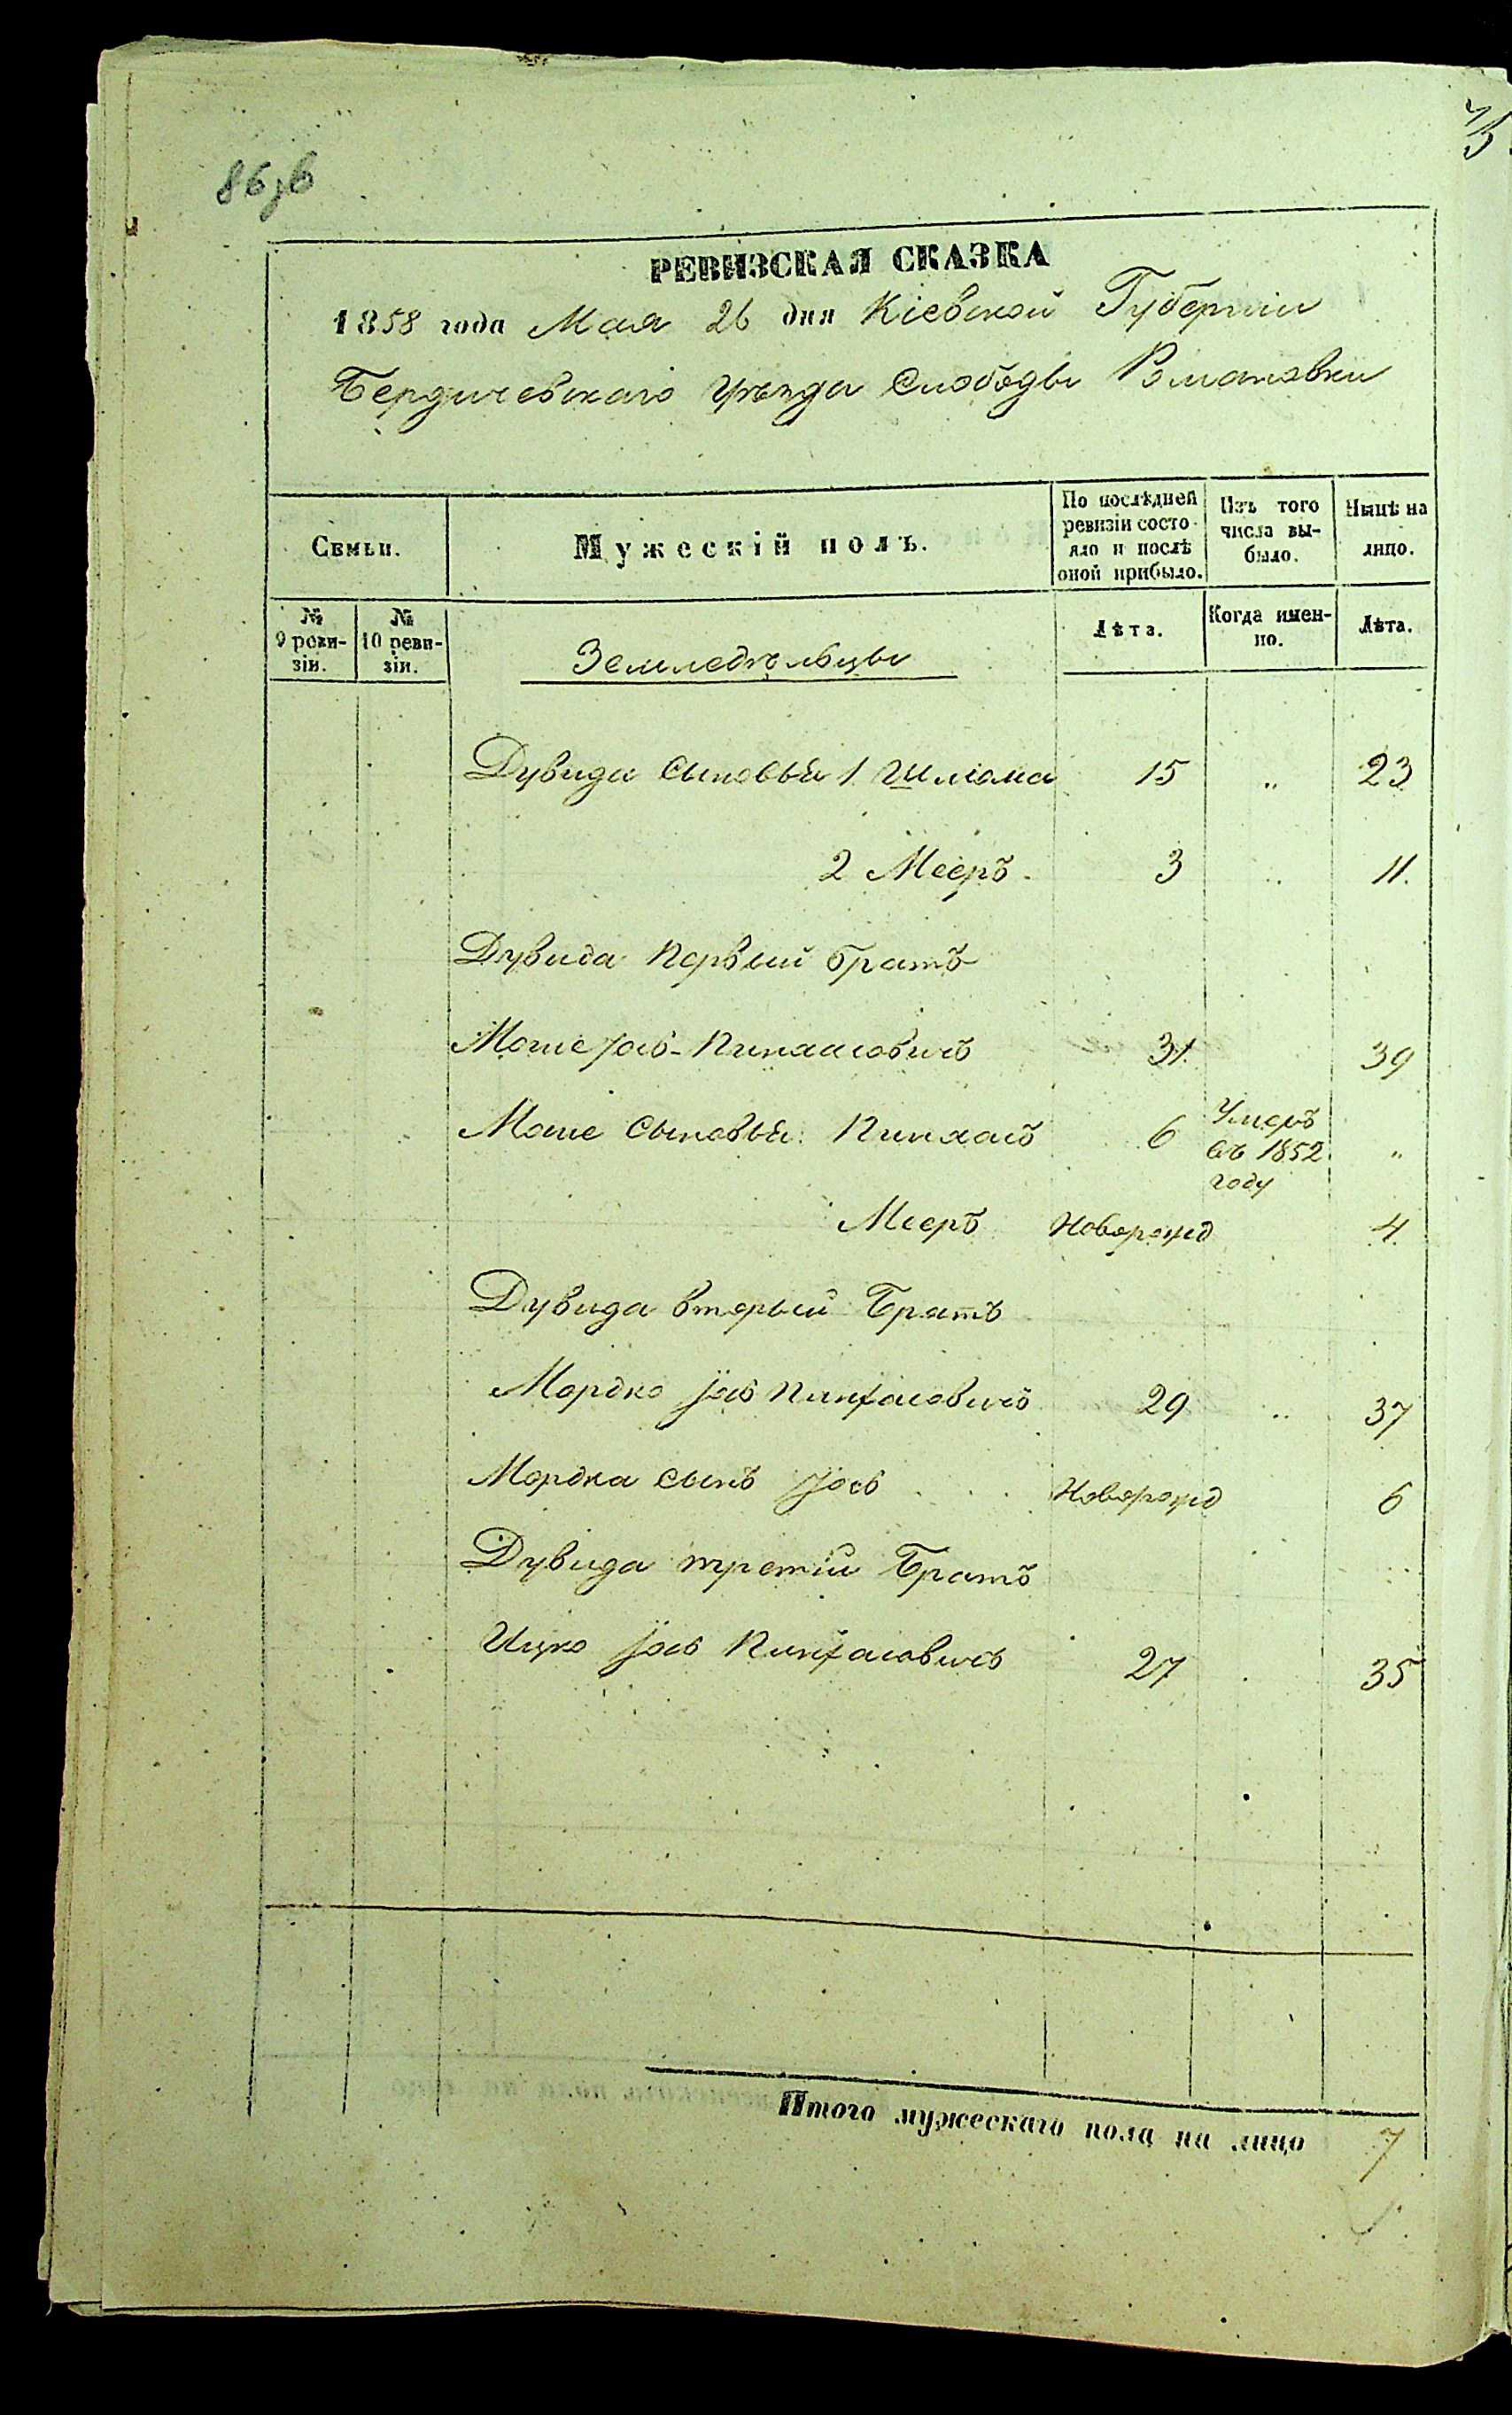 86зв
РЕВИЗСКАЯ СКАЗКА
1858 года Мая 26 дня Кіевской Губерніи
Бердичевскаго Уѣзда Слободы Романовки
Семьи.
Мужескій полъ.
По послѣдней ревизіи состояло и послѣ оной прибыло.
Изъ того числа выбыло.
Нынѣ на лицо.
№ 9 ревизіи.
№ 10 ревизіи.
Земледѣльцы
Лѣта.
Когда именно.
Лѣта.
Дувида сыновья 1 Шлома 15 „ 23
2 Мееръ 3 „ 11.
Дувида Первый братъ
Моше Іос-Пинхасовичъ 31 39
Моше Сыновья: Пинхасъ 6 Умеръ въ 1852 году „
Мееръ Новорожд 4
Дувида вторый Братъ
Мордко Іос Пинхасовичъ 29 „ 37
Мордка сынъ Іось Новорожд 6
Дувида третій Братъ
Ицко Іос Пинхасовичъ 27 35
Итого мужескаго пола на лицо 7